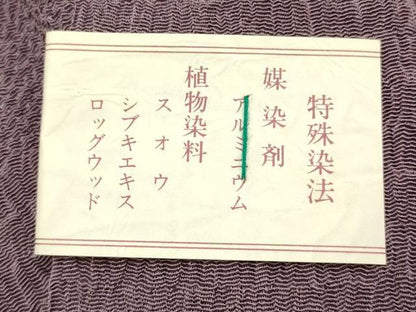 特殊染法
媒染剤
アルミニウム
植物染料
スオウ
シブキエキス
ロッグウッド